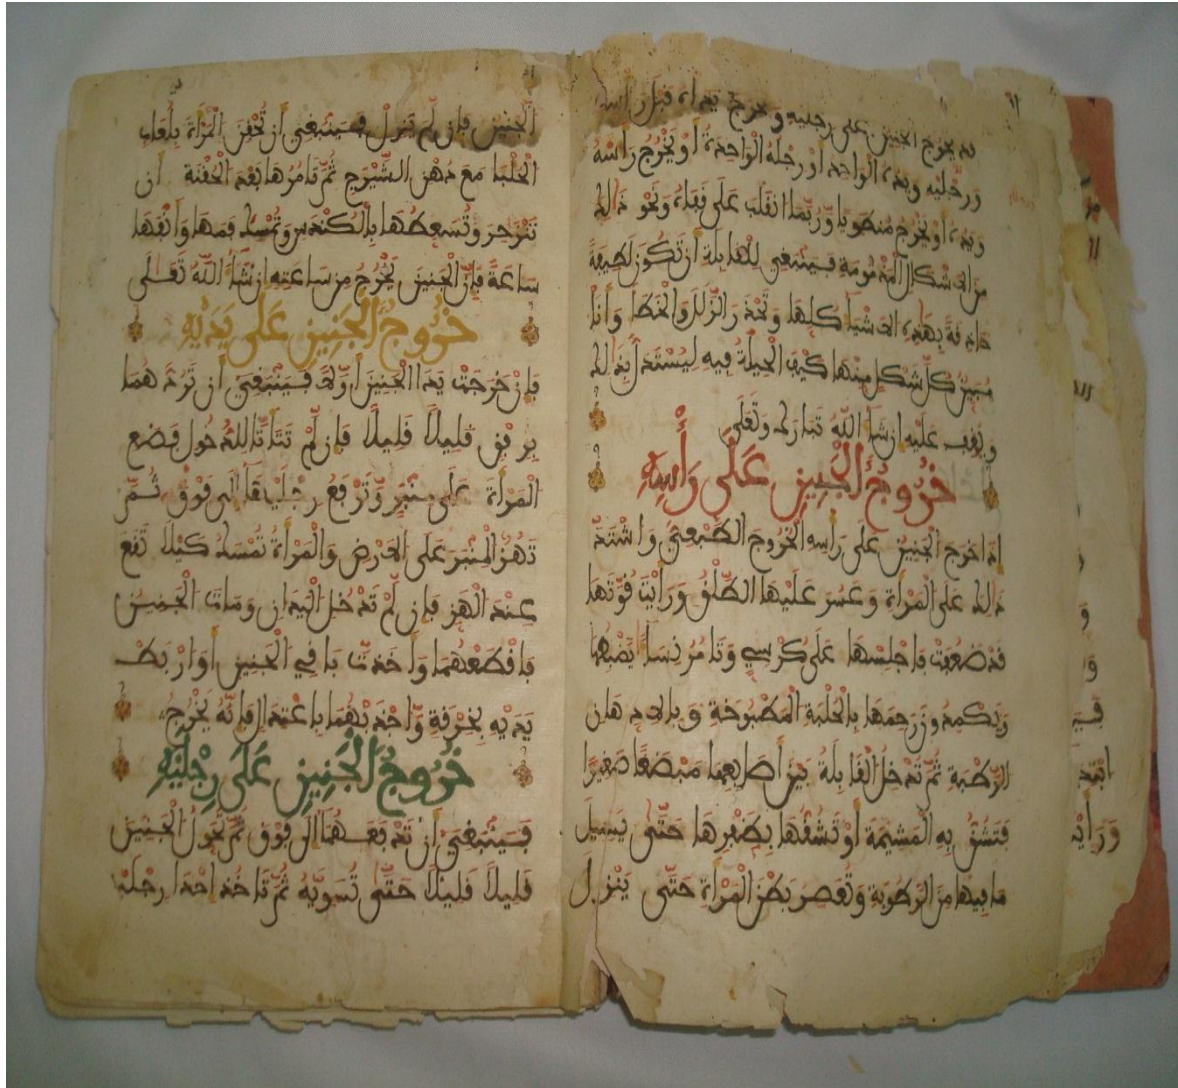 قد يخرج الجنين على رجليه وتخرج يداه قبل راسه
ورجليه ويده الواحدة او رجله الواحدة أو يخرج راسه
ويده او يخرج منطويا وربما انقلب على قفاه ونحو ذالك
من الاشكال المذمومة فينبغي للقابلة أن تكون لطيفة
حاذقة بهذه الاشيا كلها وتحذر الزلل والخطا وأنا
مبين كل شكل منها كيف الحيلة فيه ليستدل بذالك
ويوقف عليه إن شا الله تبارك وتعلى
خُرُوجُ الْجَنِينِ عَلَى رَأْسِهِ
اذا خرج الجنين على راسه الخروج الطبعي واشتد
ذالك على المرأة وعسر عليها الطلق ورايت قوتها
قد ضعفت فاجلسها على كرسي وتامر نسا يضبطها
ويكمد ورحمها بالحلبة المطبوخة وبالادهان
الرطبة ثم تدخل القابلة بين أصابعها مبضعا صغيرا
فتشق به المشيمة أو تشقها بظفرها حتى يسيل
ما فيها من الرطوبة وتعصر بطن المرأة حتى ينزل
الجنين فإن لم ينزل فينبغي أن تحقن المرأة بلعاب
الحلبا مع دهن الشيرج ثم تامرها بعد الحقنة ان
تتزحر وتسعطها بالكندس وتمسك فمها وأنفها
ساعة فإن الجنين يخرج من ساعته إن شا الله تعلى
خُرُوجُ الْجَنِينِ عَلَى يَدَيْهِ
فإن خرجت يدا الجنين أولا فينبغي أن تردهما
برفق قليلا قليلا فإن لم تتات للدخول فضع
المرأة على منبر وترفع رجليها الى فوق ثم
تهز المنبر على الارض والمرأة تمسك كيلا تقع
عند الهز فإن لم تدخل اليدان ومات الجنين
فاقطعهما واخذت باقي الجنين أو اربط
يديه بخرقة واجذبهما باعتدال فإنه يخرج
خُرُوجُ الْجَنِينِ عَلَى رِجْلَيْهِ
فينبغي أن تدفعهما الى فوق ثم تحول الجنين
قليلا قليلا حتى تسويه ثم تاخذ احدا رجليه